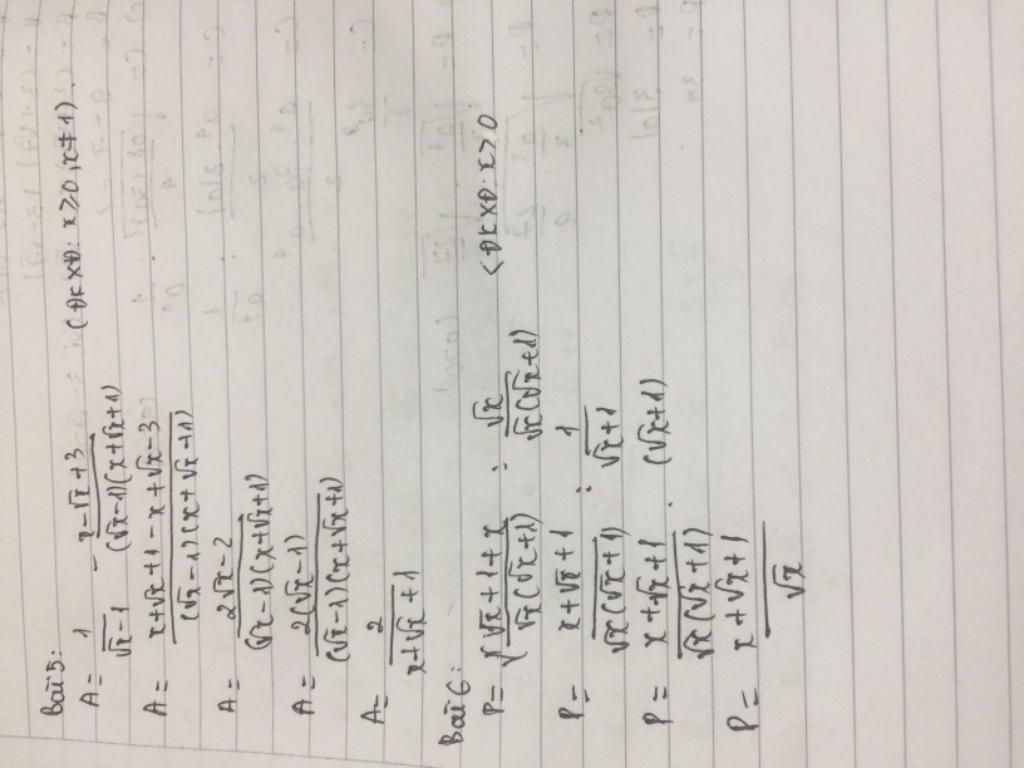 Bài 5:
A = 1/(√x - 1) - (x - √x + 3)/((√x - 1)(x + √x + 1)) (ĐKXĐ: x ≥ 0, x ≠ 1).
A = (x + √x + 1 - x + √x - 3)/((√x - 1)(x + √x + 1))
A = (2√x - 2)/((√x - 1)(x + √x + 1))
A = 2(√x - 1)/((√x - 1)(x + √x + 1))
A = 2/(x + √x + 1)
Bài 6:
P = ((√x + 1 + x)/(√x(√x + 1))) : √x/(√x(√x + 1)) (ĐKXĐ: x > 0
P = (x + √x + 1)/(√x(√x + 1)) : 1/(√x + 1)
P = (x + √x + 1)/(√x(√x + 1)) . (√x + 1)
P = (x + √x + 1)/√x